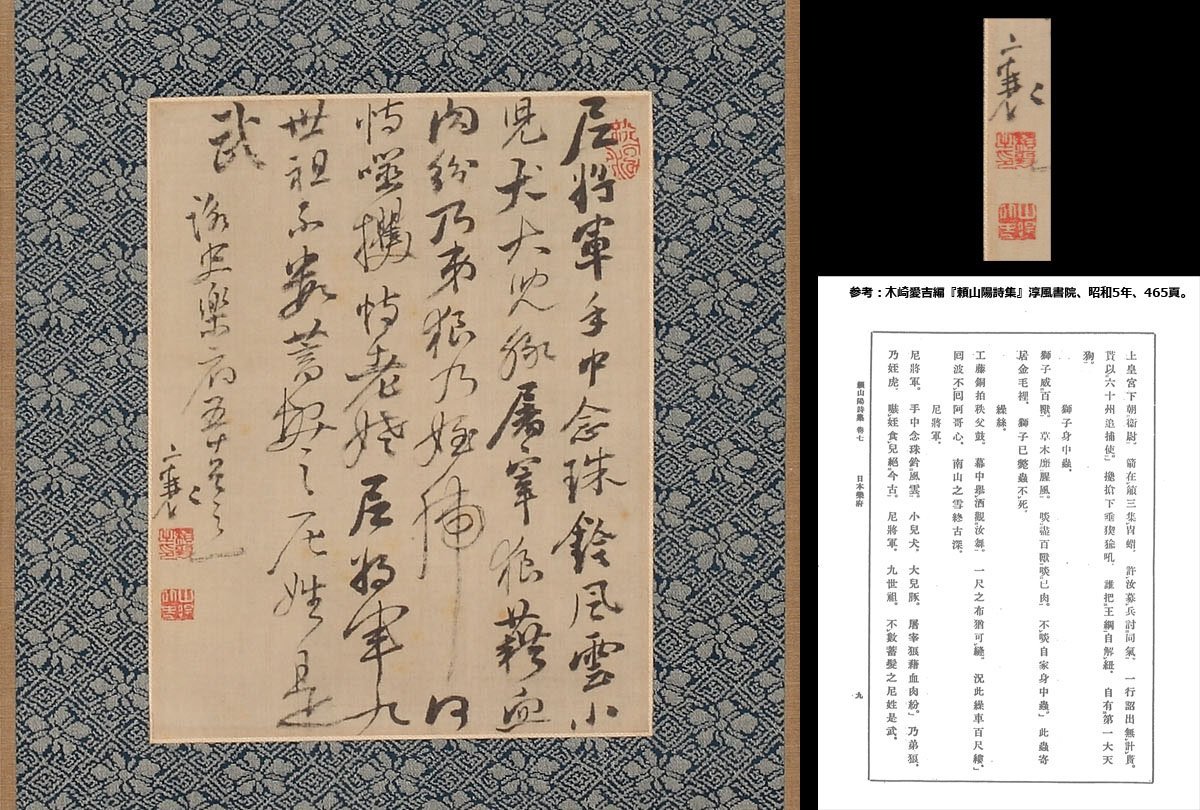 尼将軍手中念珠鈴風雲小
児犬大児豚屠宰狼藉血
肉紛乃弟狼乃姪虎何
恃噬攫恃老 尼将軍九
世祖不数蓄髪之尼姓是
武
詠史楽府五十首之一
襄
襄
参考：木崎愛吉編『頼山陽詩集』淳風書院、昭和5年、465頁。
上皇宮下朝衞尉。箭在箙三集冑蝟。許汝募兵討同氣。一行詔出無計貲。
貰以六十州追捕使。攙搶下垂 吼。誰把王綱自解紐。自有第一大天
狗。
獅子身中蟲。
獅子威百獸。草木靡腥風。啖盡百獸啖己肉。不啖自家身中蟲」此蟲寄
居金毛裡。獅子已斃蟲不死。
繰絲。
工藤銅拍秩父鼓。幕中擧酒觀汝舞。一尺之布猶可縫。況此繰車百尺縷。」
回波不回阿哥心。南山之雪終古深。
尼將軍。
尼將軍。手中念珠鈴風雲。小兒犬。大兒豚。屠宰狼藉血肉紛」乃弟狼。
乃姪虎。嗾姪食兒絕今古。尼將軍。九世祖。不數蓄髮之尼姓是武。
頼山陽詩集 卷七 日本樂府 九